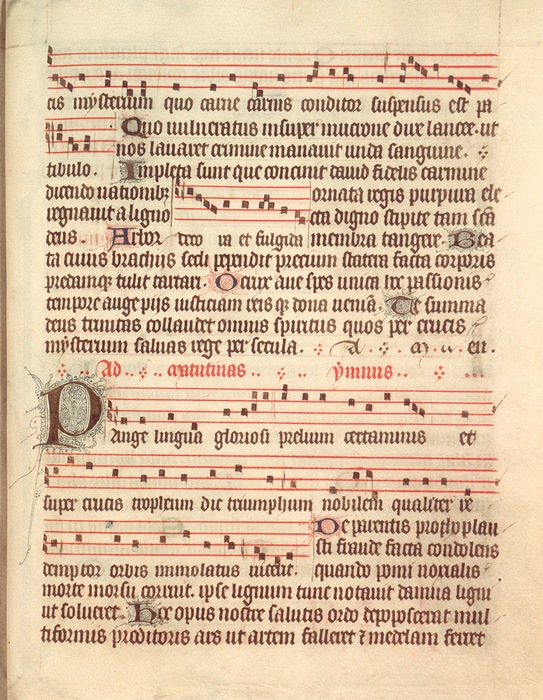 cis mysterium quo carne carnis conditor suspensus est pa
Quo vulneratus insuper mucrone dire lancee. ut
nos lavaret crimine manavit unda sanguine.
tibulo. Impleta sunt que concinit david fidelis carmine
dicendo nationibꝫ ornata regis purpura ele
regnavit a ligno cta digno stipite tam scā
deus. Arbor deco ra et fulgida membra tangere. Bea
ta cuius brachijs secli pependit precium statera facta corporis
predamqꝫ tulit tartari. O crux ave spes unica hec passionis
tempore auge pijs iusticiam reis qꝫ dona veniā. Te summa
deus trinitas collaudet omnis spiritus quos per crucis
mysterium salvas rege per secula. A m en.
Ad matutinas ymnus
Pange lingua gloriosi prelium certaminis et
super crucis tropheum dic triumphum nobilem qualiter re
De parentis prothoplau
sti fraude facta condolens
demptor orbis immolatus vicerit. quando pomi noxialis
morte morsu corruit. ipse lignum tunc notavit damna ligni
ut solveret. Hoc opus nostre salutis ordo depoposcerat mul
tiformis proditoris ars ut artem falleret ⁊ medelam ferret